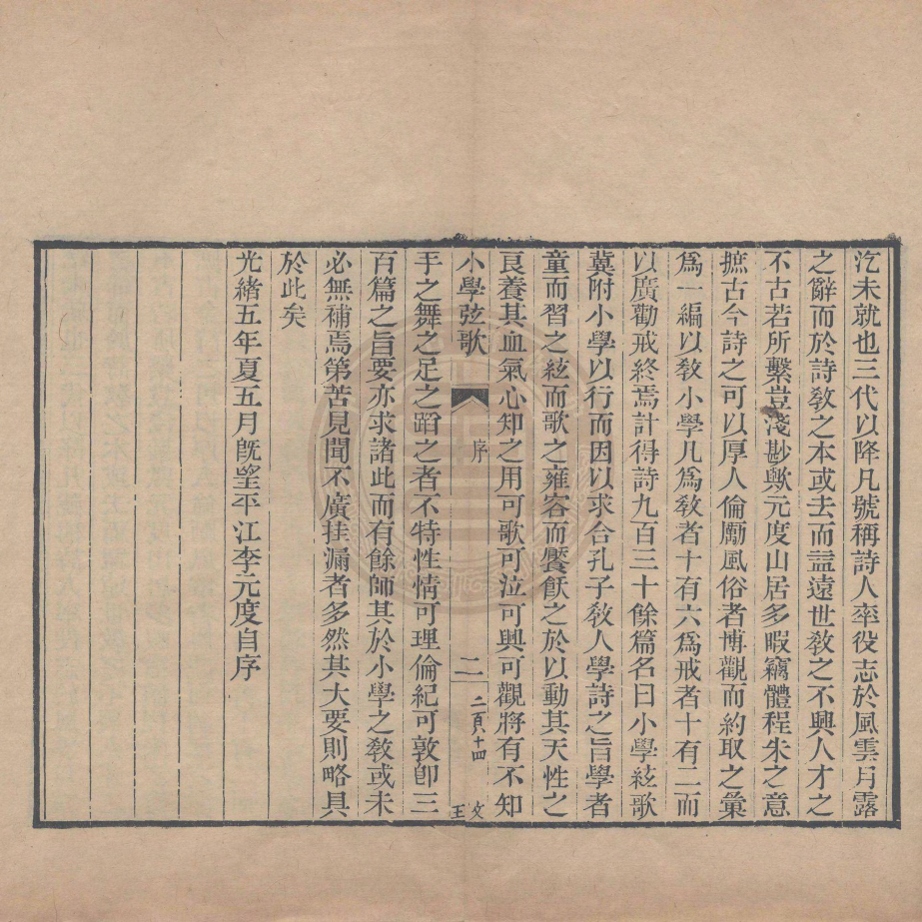 汔未就也三代以降凡號稱詩人率役志於風雲月露
之辭而於詩敎之本或去而益遠世敎之不興人才之
不古若所繫豈淺尠歟元度山居多暇竊體程朱之意
摭古今詩之可以厚人倫勵風俗者博觀而約取之彙
爲一編以敎小學凡爲敎者十有六爲戒者十有二而
以廣勸戒終焉計得詩九百三十餘篇名曰小學絃歌
冀附小學以行而因以求合孔子敎人學詩之旨學者
童而習之絃而歌之雍容而饜飫之於以動其天性之
良養其血氣心知之用可歌可泣可興可觀將有不知
小學弦歌 序 二 二頁十四 文 王
手之舞之足之蹈之者不特性情可理倫紀可敦卽三
百篇之旨要亦求諸此而有餘師其於小學之敎或未
必無補焉第苦見聞不廣挂漏者多然其大要則略具
於此矣
光緒五年夏五月旣望平江李元度自序